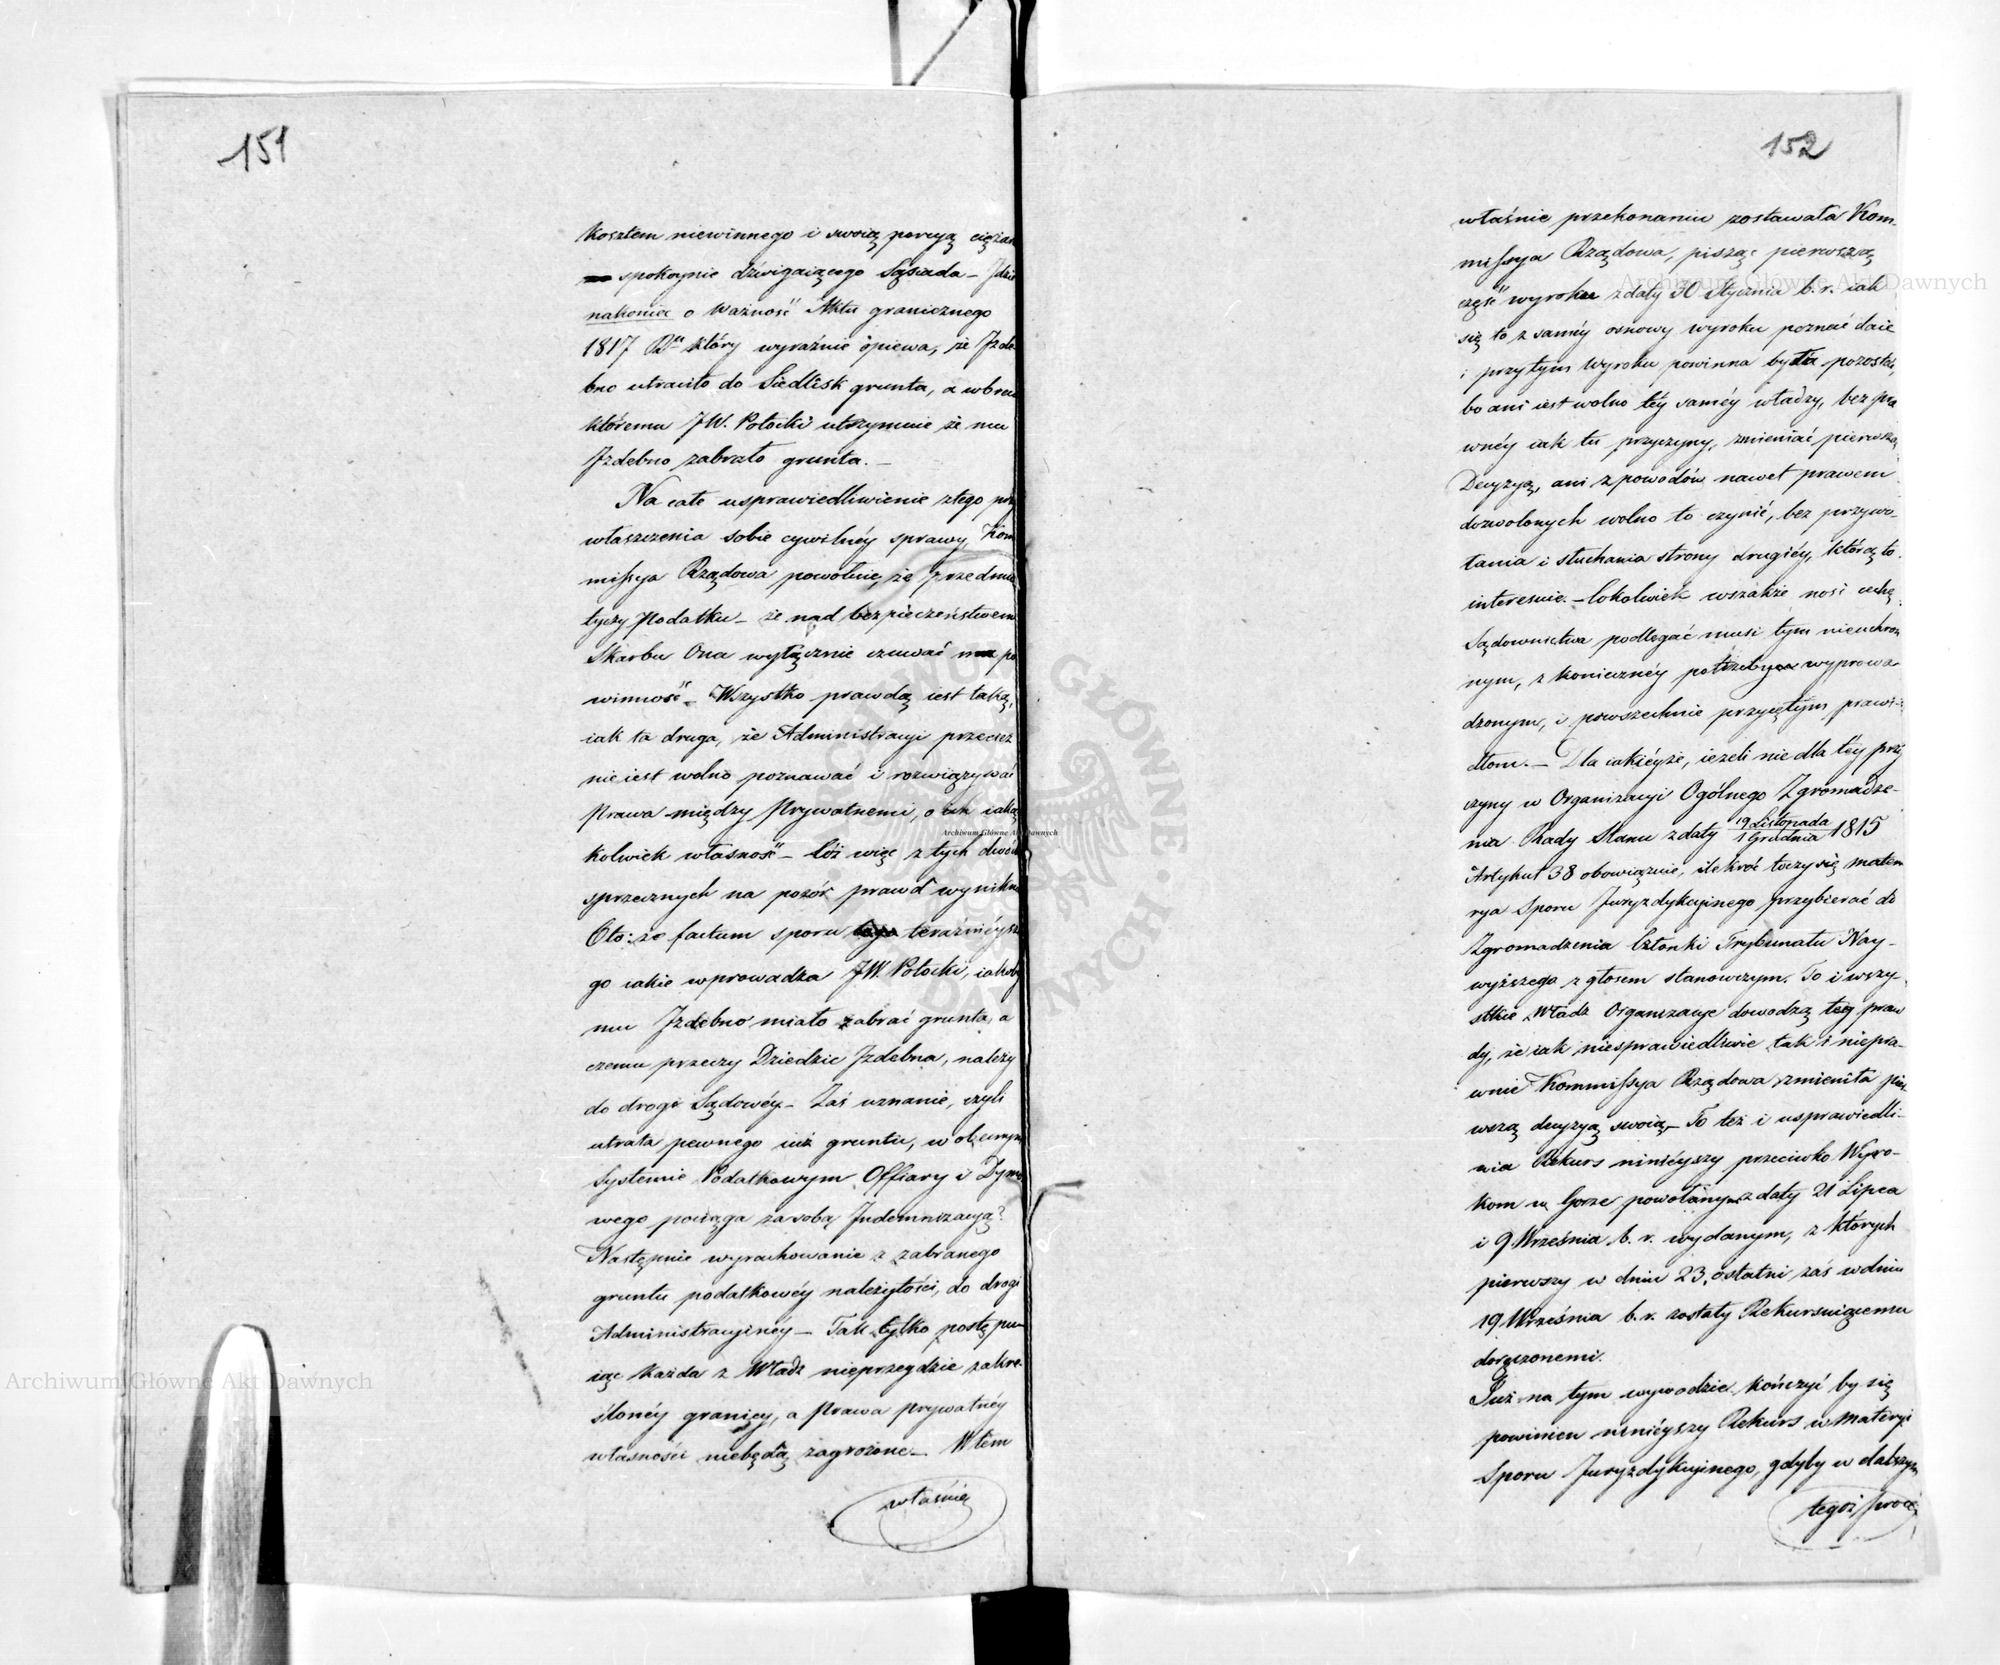 151
Kosztem niewinnego i swoią porcyą ciężar
spokoynie dźwigaiącego Sąsiada – Idzie
nakoniec o Ważność Aktu granicznego
1817 Ru który wyraźnie opiewa, że Jzde-
bno utraciło do Siedlisk grunta, a wbrew
któremu JW. Potocki utrzymuie że mu
Jzdebno zabrało grunta. –
Na całe usprawiedliwienie złego przy
właszczenia sobie cywilnéy sprawy Kom
missya Rządowa powołuie, że przedmiot
tyczy Podatku – że nad bezpieczeństwem
Skarbu Ona wyłącznie czuwać ma po
winność – Wszystko prawdą iest taką,
iak ta druga, że Administracyi przecież
nie iest wolno poznawać i rozwiązywać
Prawa między Prywatnemi, o iaką
kolwiek własność – Cóż więc z tych dwóch
sprzecznych na pozór prawd wynika
Oto: że factum sporu teraźnieysze
go iakie wprowadza JW. Potocki, iakoby
mu Jzdebno miało zabrać grunta, a
czemu przeczy Dziedzic Jzdebna, należy
do drogi Sądowéy – Zaś uznanie, czyli
utrata pewnego iuż gruntu, w obecnym
Systemie Podatkowym Offiary i Dymo
wego pociąga za sobą Indemnizacyą?
Następnie wyrachowanie z zabranego
gruntu podatkowéy należytości, do drogi
Administracyinéy – Tak tylko postępu-
iąc każda z Władz nieprzeydzie zakre-
śloney granicy, a Prawa prywatnéy
własności niebędą zagrożone – W tem
właśnie
152
właśnie przekonaniu zostawała Kom-
missya Rządowa, pisząc pierwszą
część wyroku z daty 30 Stycznia b. r. iak
się to z saméy osnowy wyroku poznać daie
i przytym Wyroku powinna była pozostać,
bo ani iest wolno téy saméy władzy, bez pra
wnéy iak tu przyczyny, zmieniać pierwszą
Decyzyą, ani z powodów nawet prawem
dozwolonych wolno to czynić, bez przywo-
łania i słuchania strony drugiéy, którą to
interesuie. – Cokolwiek wszakże nosi cechę
Sądownictwa podlegać musi tym nieuchron
nym, z konieczney potrzeby wyprowa-
dzonym, i powszechnie przyiętym prawi-
dłom. – Dla iakiéyże, ieżeli nie dla téy przy
czyny w Organizacyi Ogólnego Zgromadze-
nia Rady Stanu z daty 19 Listopada / 1 Grudnia 1815
Artykuł 38 obowiązuie, ilekroć toczy się mate-
rya Sporu Juryzdykcyinego przybierać do
Zgromadzenia Członki Trybunału Nay-
wyższego z głosem stanowczym. To i wszy-
stkie Władz Organizacye dowodzą téy praw
dy, że iak niesprawiedliwie tak i niepra-
wnie Kommissya Rządowa zmieniła pier
wszą decyzyą swoią – To też i usprawiedli-
wia Rekurs ninieyszy przeciwko Wyro-
kom w Górze powołanym z daty 21 Lipca
i 9 Września b. r. wydanym, z których
pierwszy w dniu 23, ostatni zaś w dniu
19 Września b. r. zostały Rekursuiącemu
doręczonemi.
Już na tym wywodzie kończyć by się
powinien ninieyszy Rekurs w Materyi
Sporu Juryzdykcyinego, gdyby w dalszym
tegoż
Archiwum Główne Akt Dawnych
Archiwum Główne Akt Dawnych
Archiwum Główne Akt Dawnych
ARCHIWUM GŁÓWNE AKT DAWNYCH